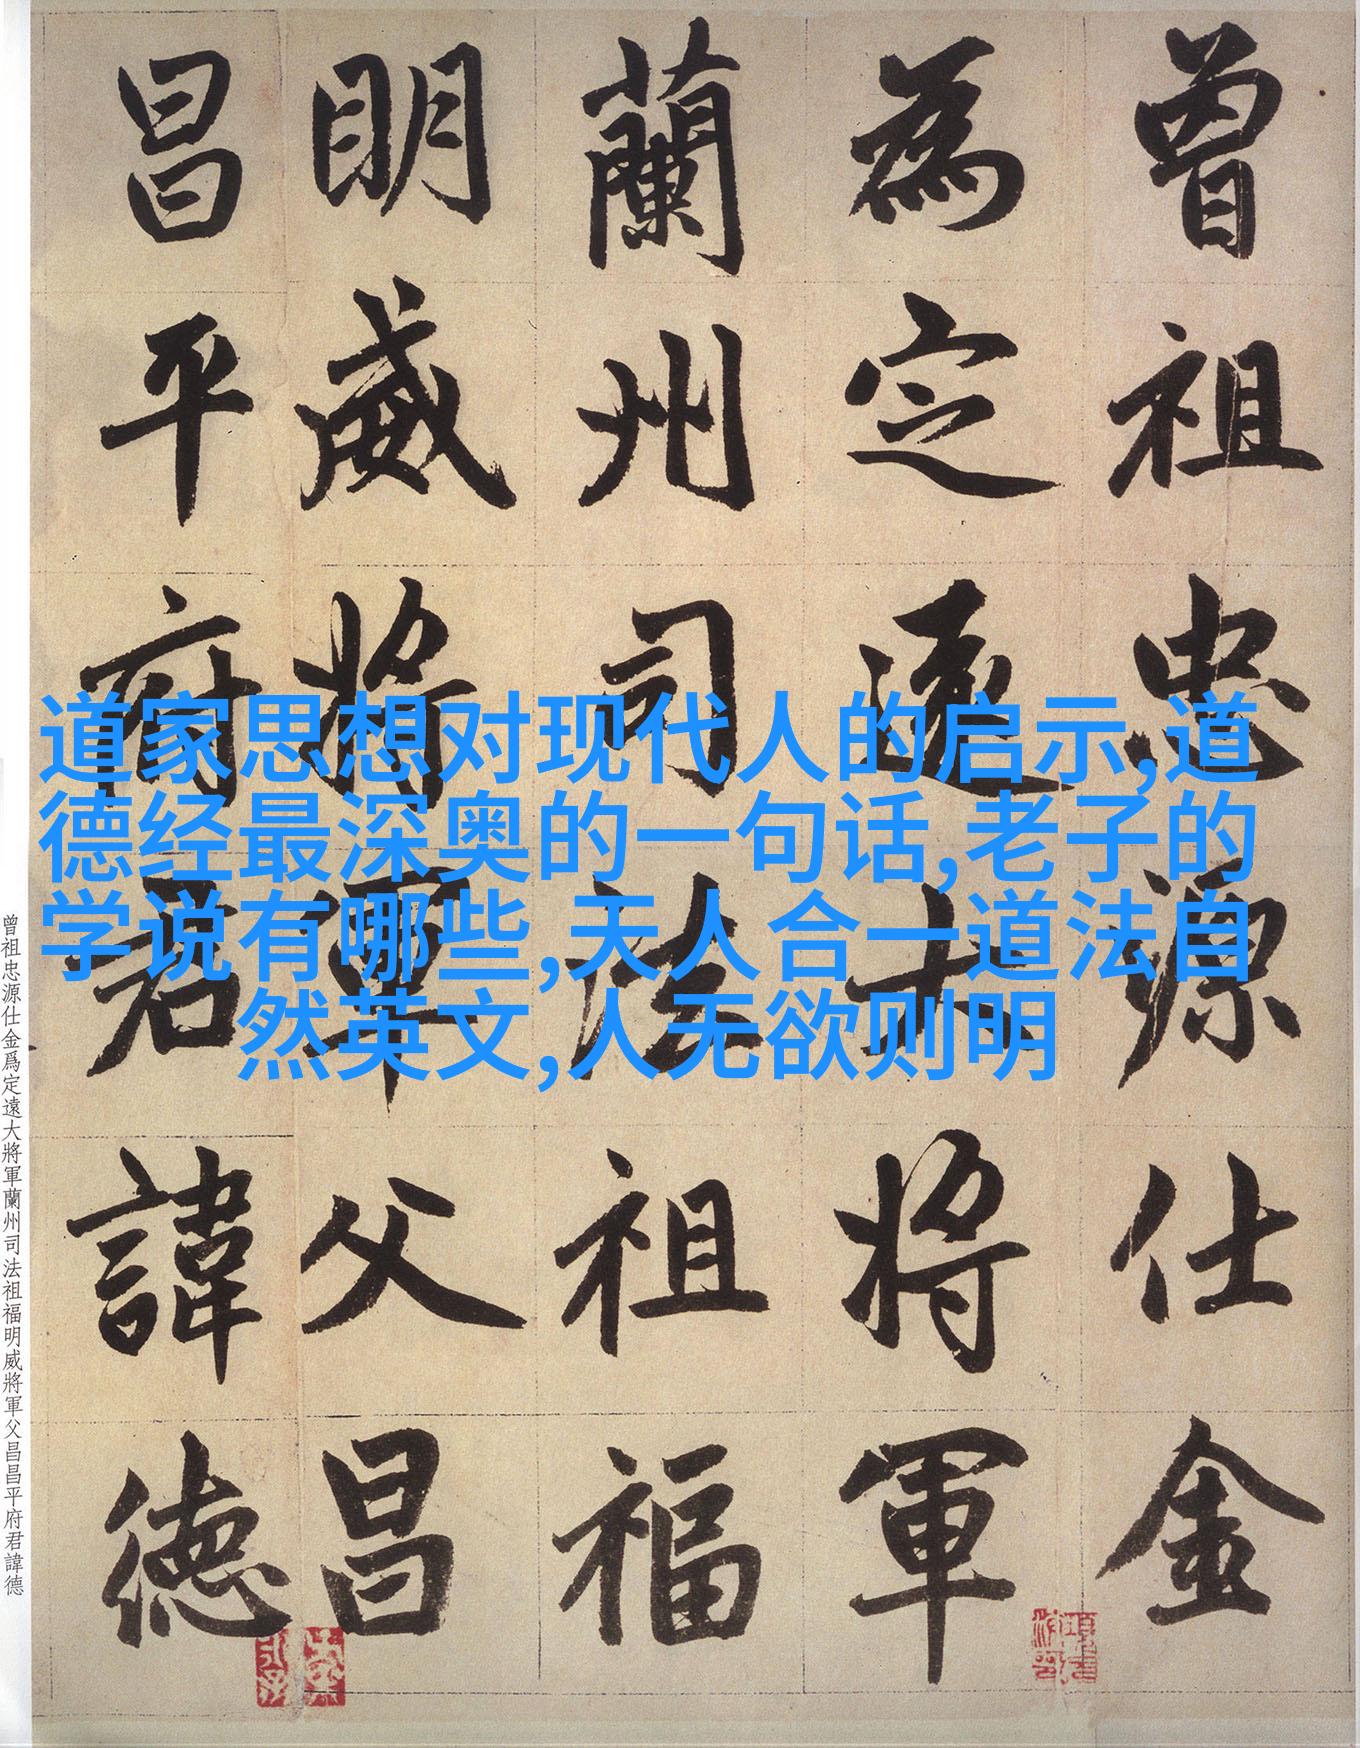 曾祖忠源仕金
為定遠大將軍
蘭州司法祖福
明威將軍父昌
昌平府君諱德
道家思想对现代人的启示,道
德经最深奥的一句话,老子的
学说有哪些,天人合一道法自
然英文,人无欲则明
曾祖忠源仕金爲定遠大將軍蘭州司法祖福明威將軍父昌昌平府君諱德